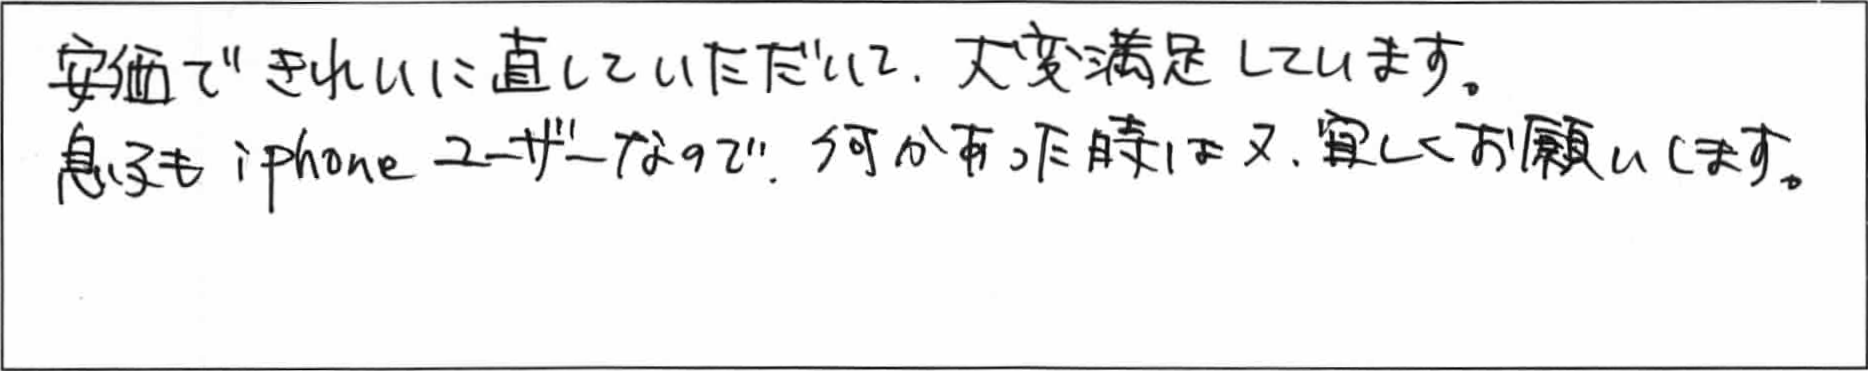 安価できれいに直していただいて、大変満足しています。
息子もiphoneユーザーなので、何かあった時は又、宜しくお願いします。